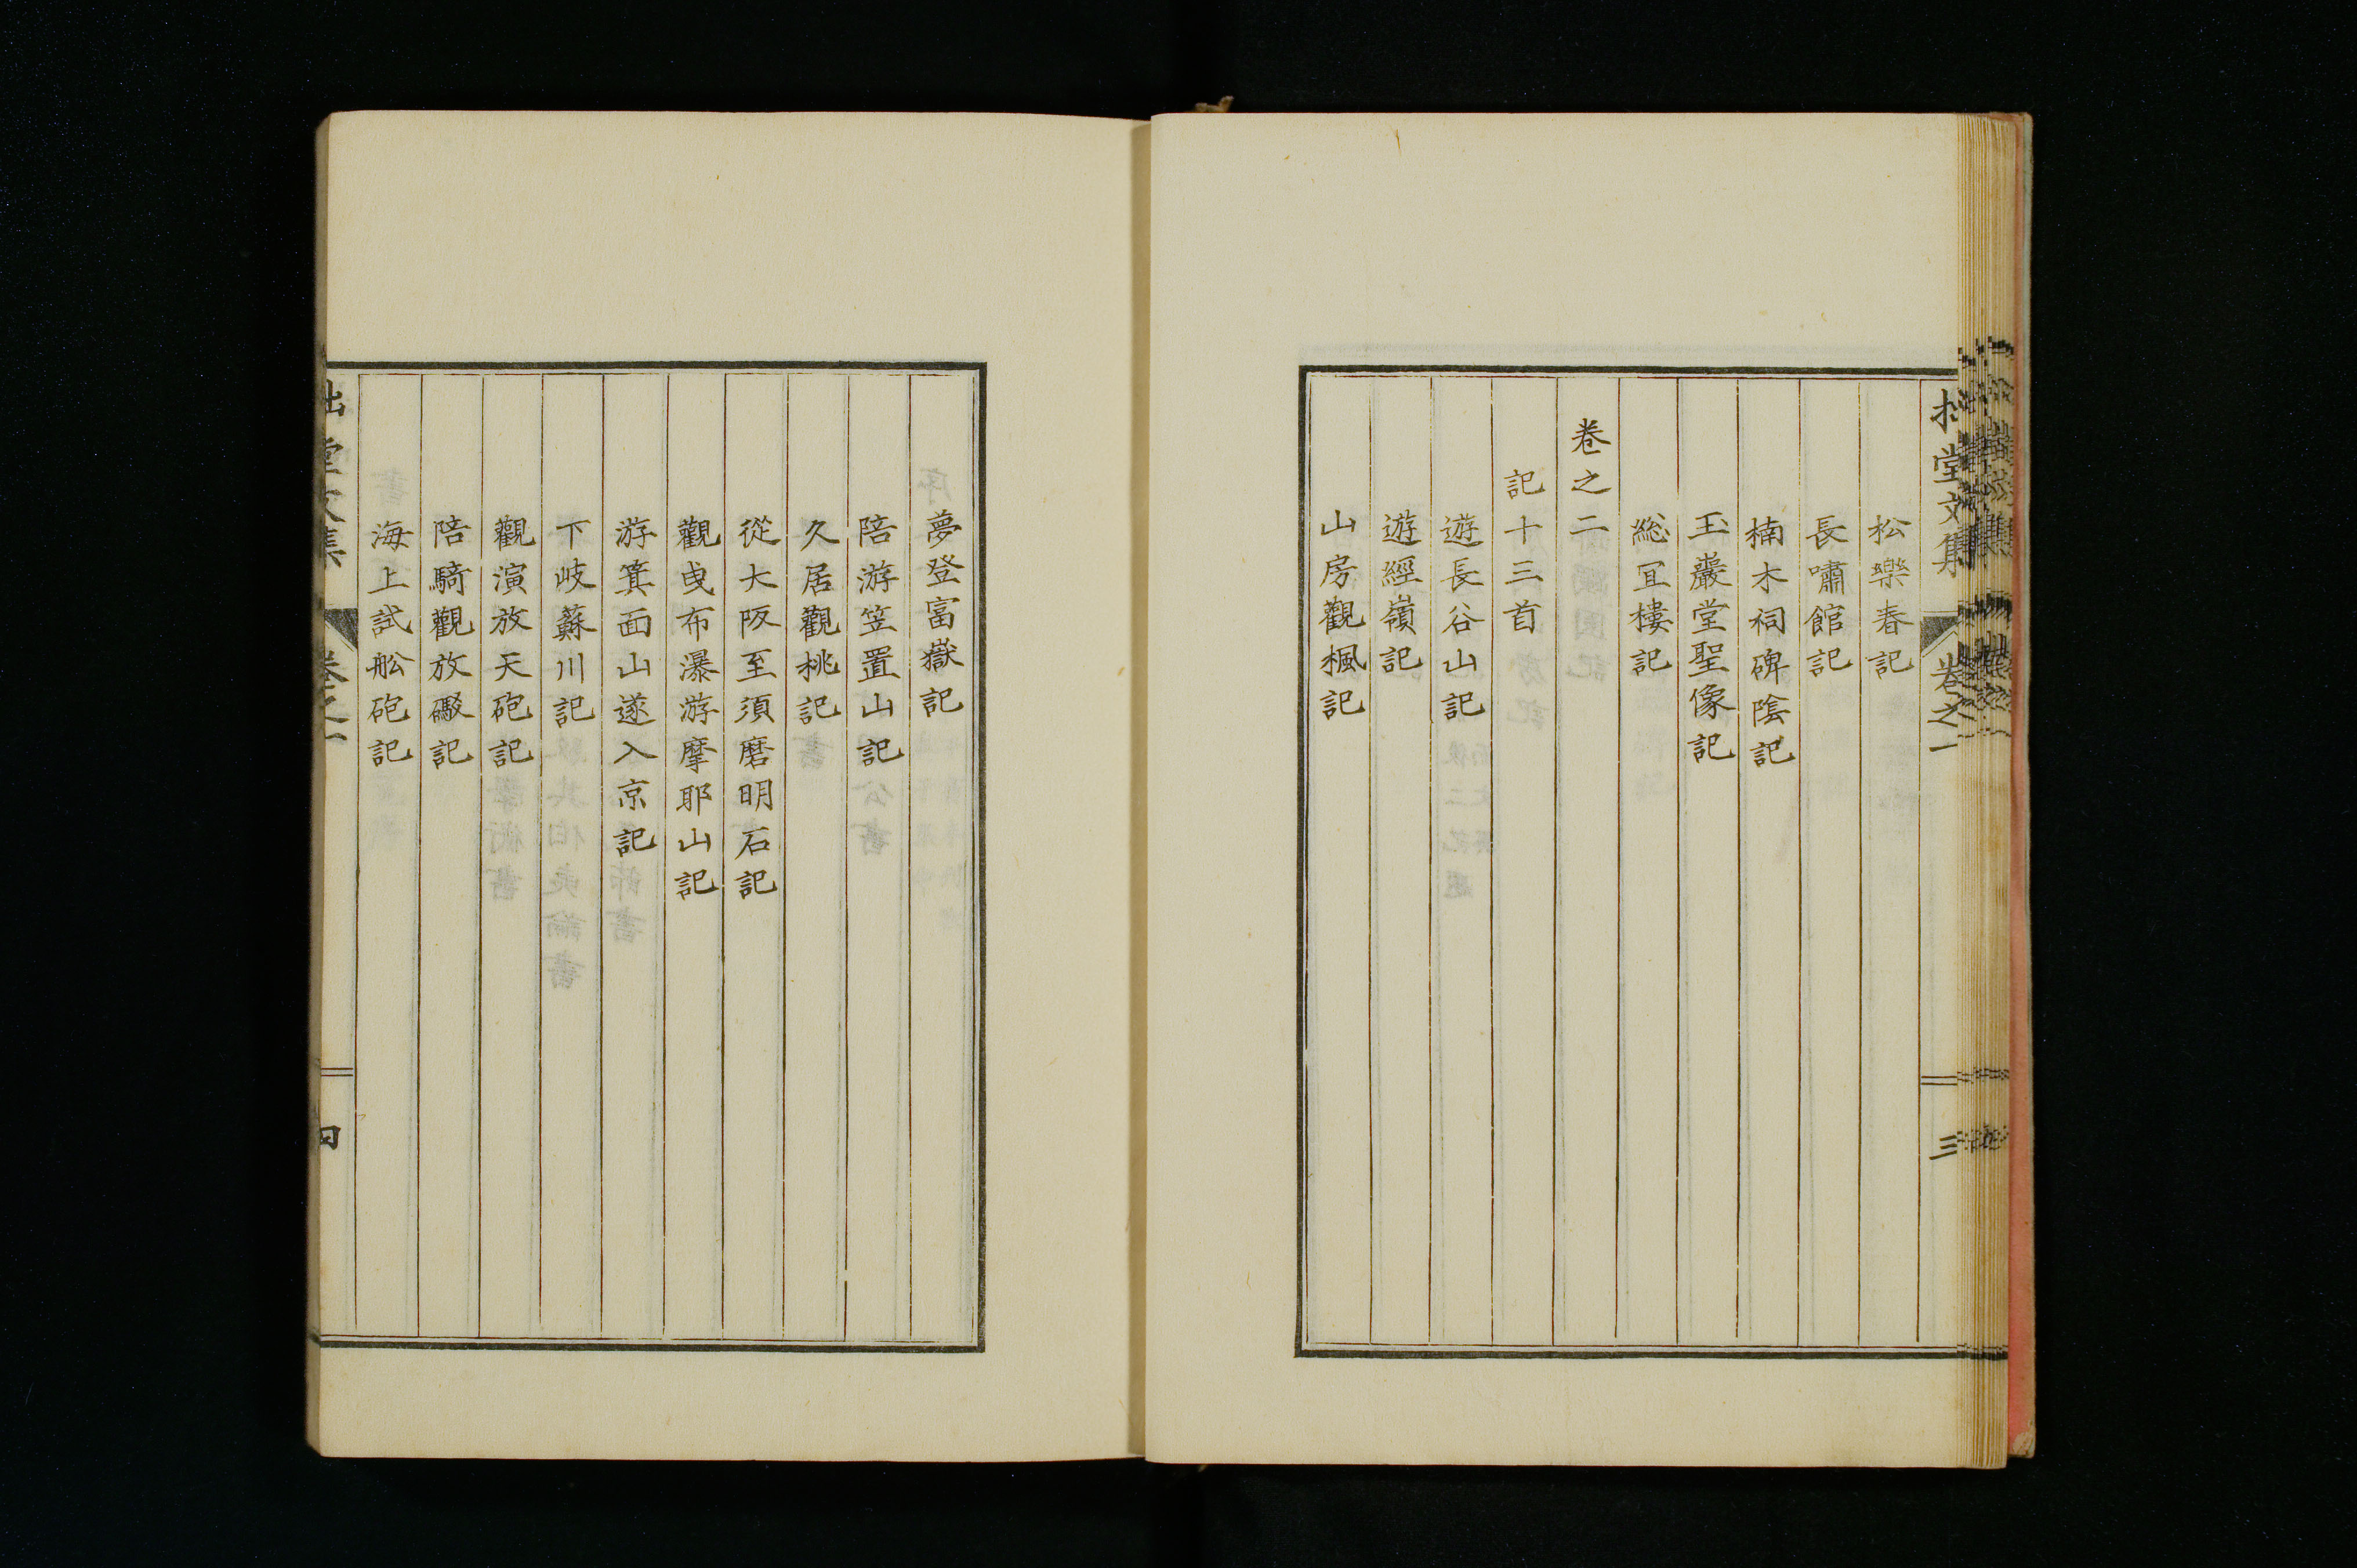 堂文集 卷之一 三
松樂春記
長嘯館記
楠木祠碑陰記
玉巖堂聖像記
総宜樓記
卷之二
記十三首
遊長谷山記
遊經嶺記
山房觀楓記
夢登富嶽記
陪游笠置山記
久居觀桃記
從大阪至須磨明石記
觀曳布瀑游摩耶山記
游箕面山遂入京記
下岐蘇川記
觀演放天砲記
陪騎觀放礮記
海上試舩砲記
堂文集 卷之一 四